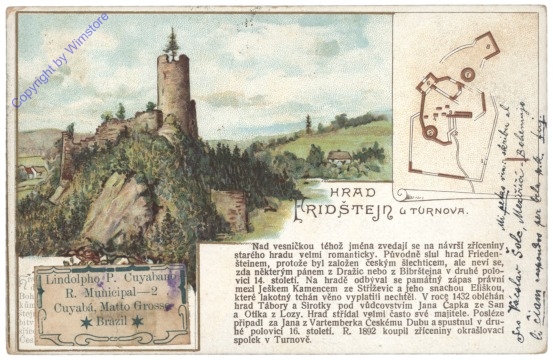 Copyright by Wimstore
HRAD
FRIDŠTEJN
U TURNOVA.
Nad vesničkou téhož jména zvedají se na návrší zříceniny
starého hradu velmi romantický. Původně slul hrad Frieden-
šteinem, protože byl založen českým šlechticem, ale neví se,
zda některým pánem z Dražic nebo z Bibrštejna v druhé polo-
vici 14. století. Na hradě odbýval se památný zápas právní
mezi Ješkem Kamencem ze Stříževic a jeho snachou Eliškou,
které lakotný tchán věno vyplatiti nechtěl. V roce 1432 obléhán
hrad Tábory a Sirotky pod vůdcovstvím Jana Čapka ze San
a Otíka z Lozy. Hrad střídal velmi často své majitele. Posléze
připadl za Jana z Vartemberka Českému Dubu a spustnul v dru-
hé polovici 16. století. R. 1892 koupil zříceniny okrašlovací
spolek v Turnově.
Lindolpho P. Cuyabano
R. Municipal—2
Cuyabá, Matto Grosso
Brazil
Mi petas vin, skribu al
Bohemujo